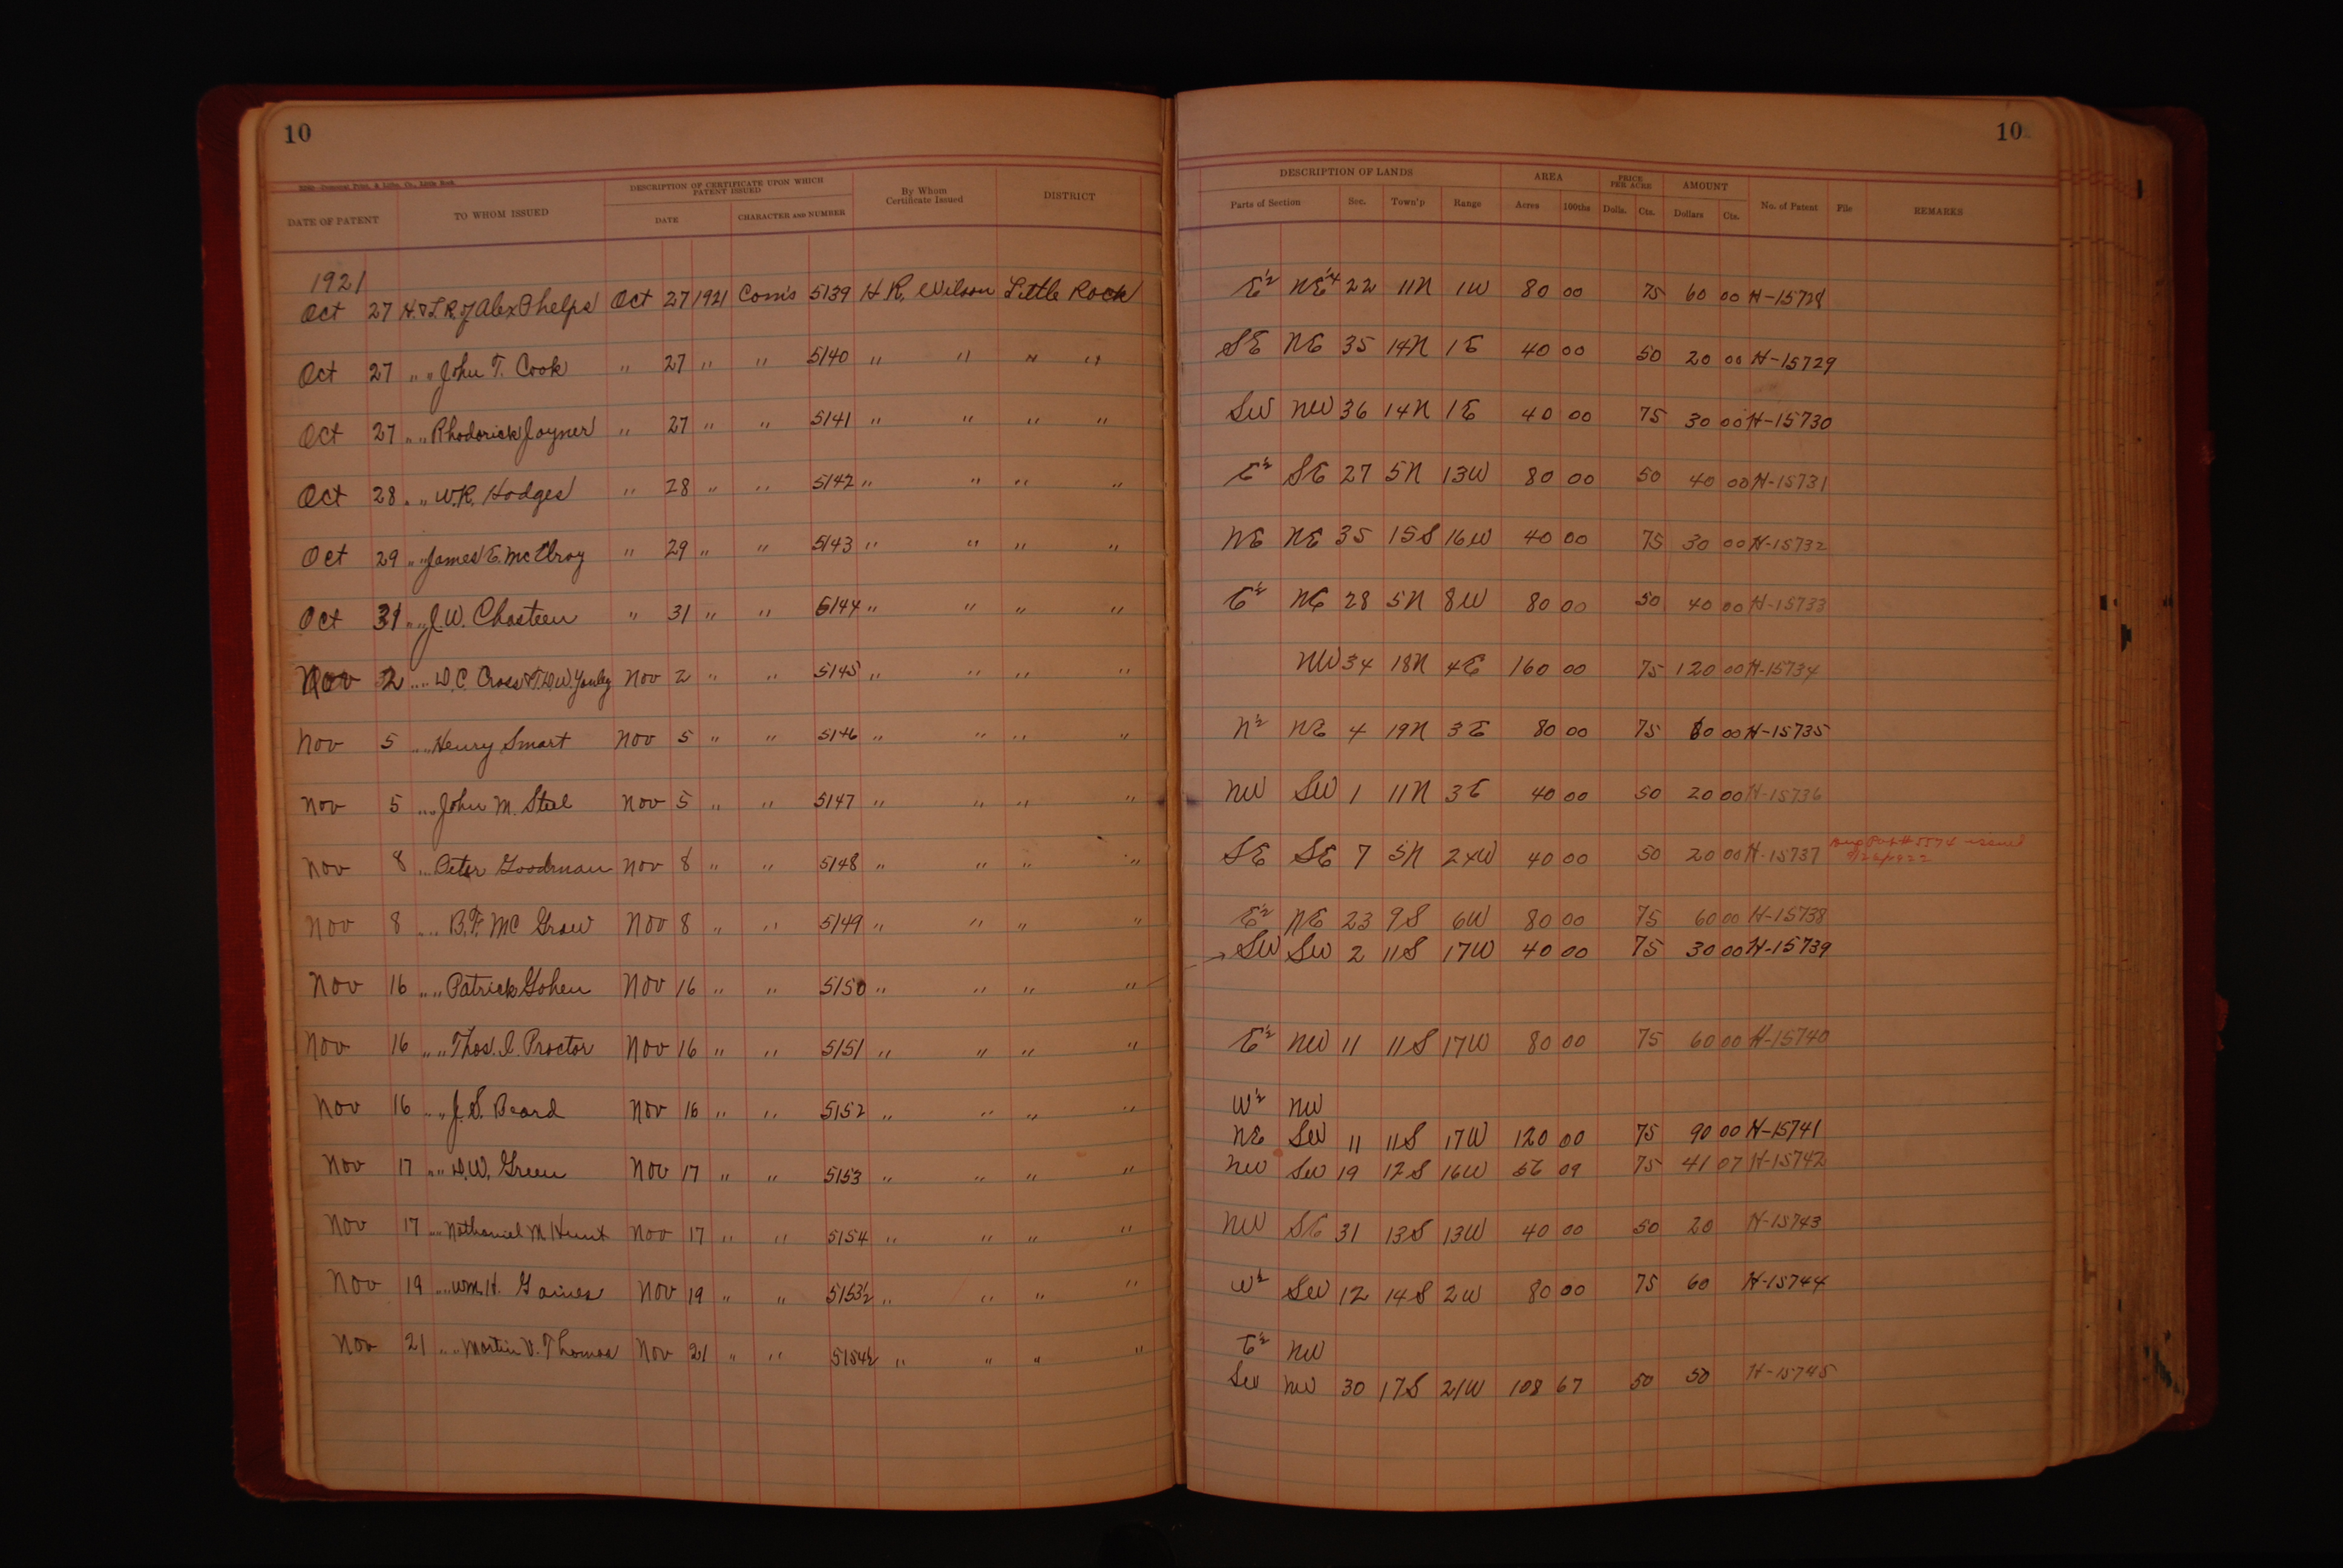 10
DATE OF PATENT TO WHOM ISSUED DESCRIPTION OF CERTIFICATE UPON WHICH PATENT ISSUED DATE CHARACTER AND NUMBER By Whom Certificate Issued DISTRICT
1921
Oct 27 H. & L. R. of Alex Phelps Oct 27 1921 Com's 5139 H R. Wilson Little Rock
Oct 27 " " John T. Cook " 27 " " 5140 " " " "
Oct 27 " " Rhodorick Joyner " 27 " " 5141 " " " "
Oct 28 " " W.R. Hodges " 28 " " 5142 " " " "
Oct 29 " " James E. McElroy " 29 " " 5143 " " " "
Oct 31 " " J.W. Chasteen " 31 " " 5144 " " " "
Nov 2 " " D.C. Cross & T.D.W. Yonley Nov 2 " " 5145 " " " "
Nov 5 " " Henry Smart Nov 5 " " 5146 " " " "
Nov 5 " " John M. Steel Nov 5 " " 5147 " " " "
Nov 8 " " Peter Goodman Nov 8 " " 5148 " " " "
Nov 8 " " B.F. Mc Graw Nov 8 " " 5149 " " " "
Nov 16 " " Patrick Gohen Nov 16 " " 5150 " " " "
Nov 16 " " Thos. I. Proctor Nov 16 " " 5151 " " " "
Nov 16 " " J.S. Beard Nov 16 " " 5152 " " " "
Nov 17 " " D.W. Green Nov 17 " " 5153 " " " "
Nov 17 " " Nathaniel M Hunt Nov 17 " " 5154 " " " "
Nov 19 " " Wm. H. Gaines Nov 19 " " 5153½ " " " "
Nov 21 " " Martin V. Thomas Nov 21 " " 5154½ " " " "
10
DESCRIPTION OF LANDS AREA PRICE PER ACRE AMOUNT
Parts of Section Sec. Town'p Range Acres 100ths Dolls. Cts. Dollars Cts. No. of Patent File REMARKS
E½ NE¼ 22 11N 1W 80 00 75 60 00 H-15728
SE NE 35 14N 1E 40 00 50 20 00 H-15729
SW NW 36 14N 1E 40 00 75 30 00 H-15730
E½ SE 27 5N 13W 80 00 50 40 00 H-15731
NE NE 35 15S 16W 40 00 75 30 00 H-15732
E½ NE 28 5N 8W 80 00 50 40 00 H-15733
NW 34 18N 4E 160 00 75 120 00 H-15734
N½ NE 4 19N 3E 80 00 75 60 00 H-15735
NW SW 1 11N 3E 40 00 50 20 00 H-15736
SE SE 7 5N 24W 40 00 50 20 00 H-15737 issued
E½ NE 23 9S 6W 80 00 75 60 00 H-15738
→ SW SW 2 11S 17W 40 00 75 30 00 H-15739
E½ NW 11 11S 17W 80 00 75 60 00 H-15740
W½ NW
NE SW 11 11S 17W 120 00 75 90 00 H-15741
NW SW 19 12S 16W 56 09 75 41 07 H-15742
NW SE 31 13S 13W 40 00 50 20 H-15743
W½ SW 12 14S 2W 80 00 75 60 H-15744
E½ NW
SW NW 30 17S 21W 108 67 50 50 H-15745